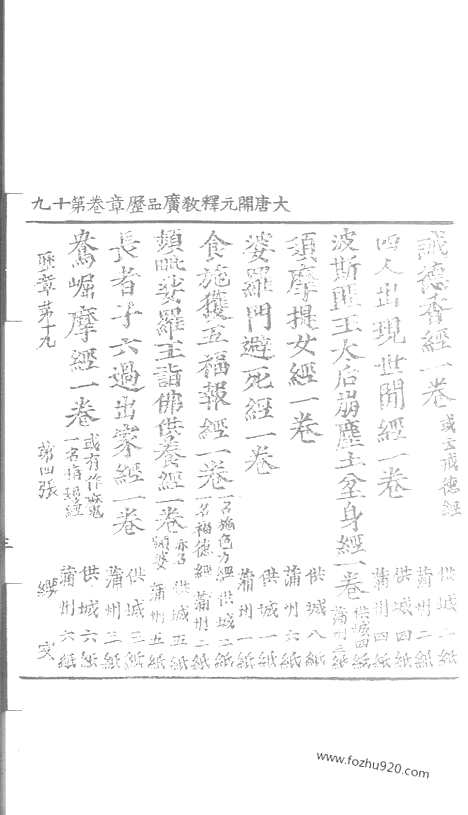 大唐開元釋教廣品歷章卷第十九
誡德香經一卷 或云戒德經 供城二紙 蒲州二紙
四人出現世間經一卷 供城四紙 蒲州四紙
波斯匿王太后崩塵土坌身經一卷 供城四紙 蒲州三紙
須摩提女經一卷 供城八紙 蒲州六紙
婆羅門避死經一卷 供城一紙 蒲州一紙
食施獲五福報經一卷 一名施色力經 一名福德經 供城二紙 蒲州二紙
頻毗娑羅王詣佛供養經一卷 亦名頻婆 供城五紙 蒲州五紙
長者子六過出家經一卷 供城三紙 蒲州三紙
鴦崛摩經一卷 或有作魔 一名指髻經 供城六紙 蒲州六紙
歷章第十九 第四張
www.fozhu920.com